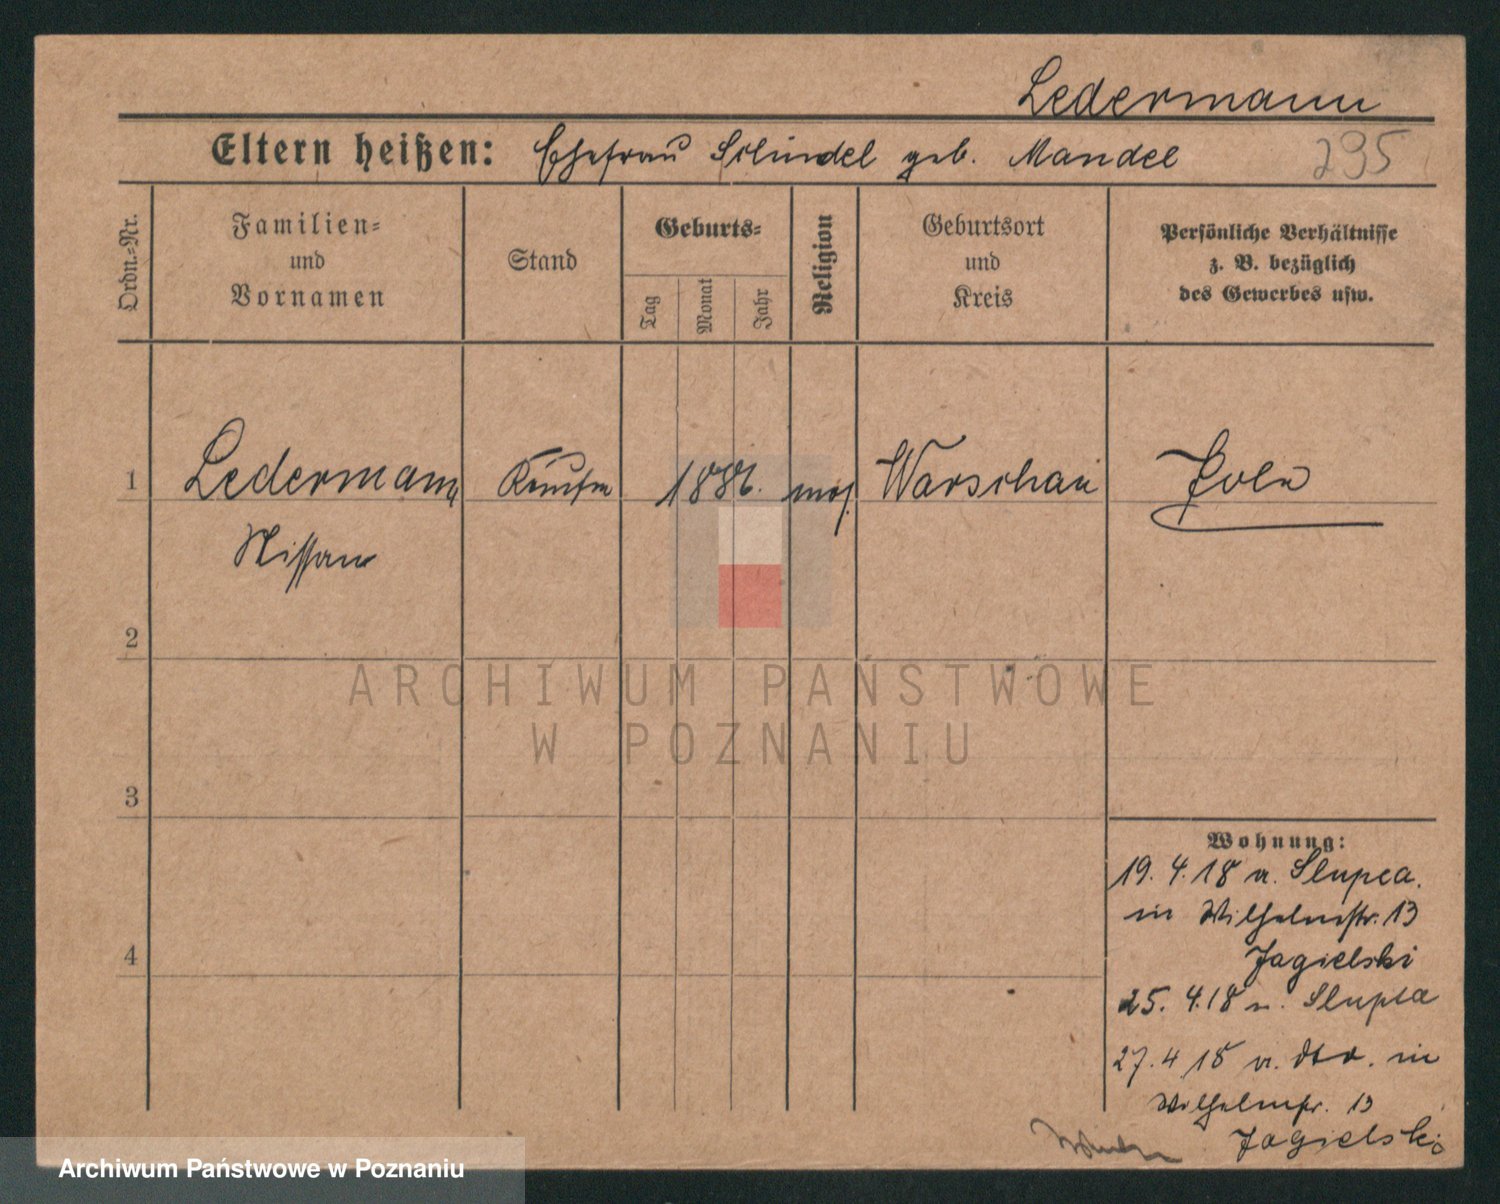 Ledermann
Eltern heißen: Ehefrau Schindel geb. Mandel
295
Ordn.-Nr.
Familien-
und
Vornamen
Stand
Geburts-
Tag
Monat
Jahr
Religion
Geburtsort
und
Kreis
Persönliche Verhältnisse
z. B. bezüglich
des Gewerbes usw.
1 Ledermann Kaufm 1886. mos. Warschau Pole
Nissan
2
ARCHIWUM PAŃSTWOWE
W POZNANIU
3
Wohnung:
19. 4. 18 v. Slupca.
in Wilhelmstr. 13
Jagielski
4
25. 4. 18 n. Slupca
27. 4. 18 v. dto. in
Wilhelmstr. 13
Jagielski
Archiwum Państwowe w Poznaniu